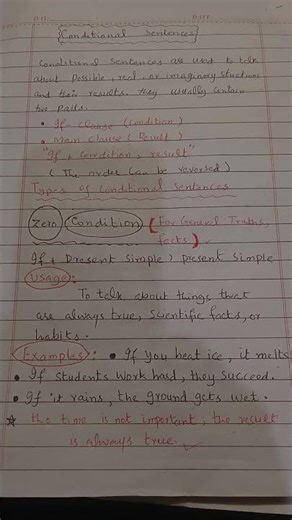 Conditional Sentences
Conditional Sentences are used to talk
about possible, real, or imaginary situations
and their results. they usually contain
two parts.
• If clause (condition)
• Main clause (Result)
"If + condition, result"
(The order can be reversed)
Types of conditional sentences
Zero Condition (For General Truths,
facts)
If + Present Simple, present simple
Usage:
To talk about things that
are always true, scientific facts, or
habits.
Examples: • If you heat ice, it melts
• If students work hard, they succeed.
• If it rains, the ground gets wet.
★ the time is not important, the result
is always true.